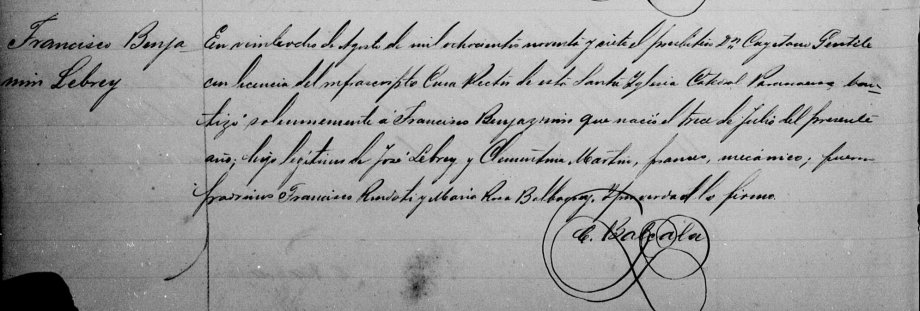 Francisco Benja
min Lebrey
En veinteocho de Agosto de mil ochocientos noventa y siete el presbítero Dn Cayetano Gentile
con licencia del infrascripto Cura Rector de esta Santa Iglesia Catedral bau-
tizó solemnemente á Francisco Benjamin que nació el trece de Julio del presente
año; hijo legítimo de José Lebrey y Clementina Martin, frances, mecánico; fueron
padrinos Francisco y Maria Rosa Y por verdad lo firmo.
C. Balcala